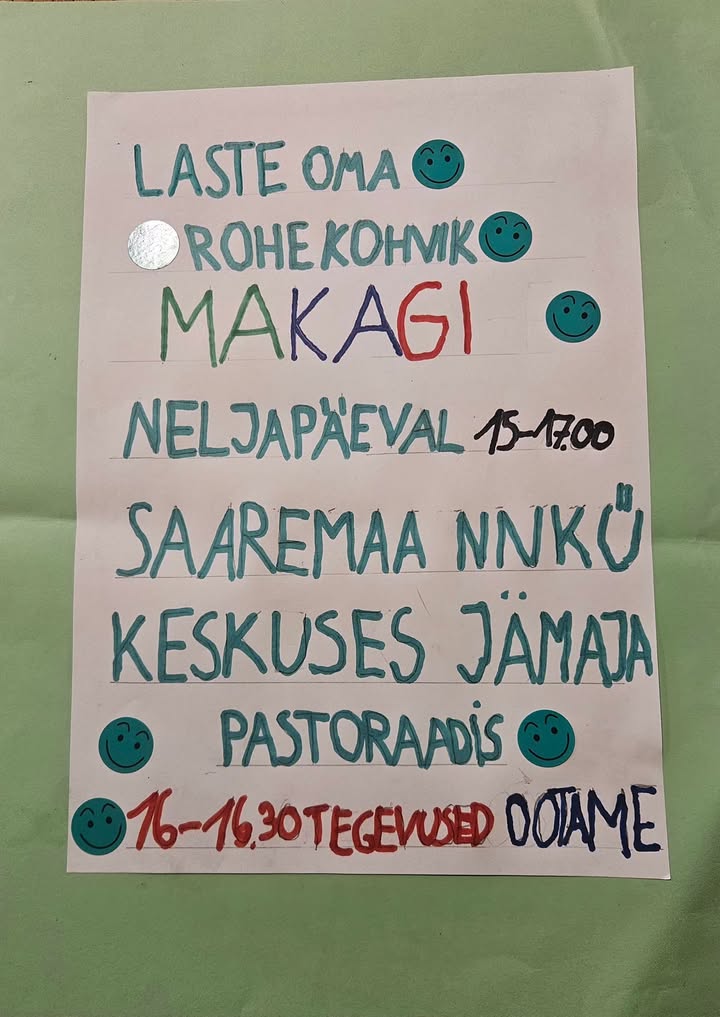 LASTE OMA
ROHEKOHVIK
MAKAGI
NELJAPÄEVAL 15-17.00
SAAREMAA NNKÜ
KESKUSES JÄMAJA
PASTORAADIS
16-16.30 TEGEVUSED OOTAME